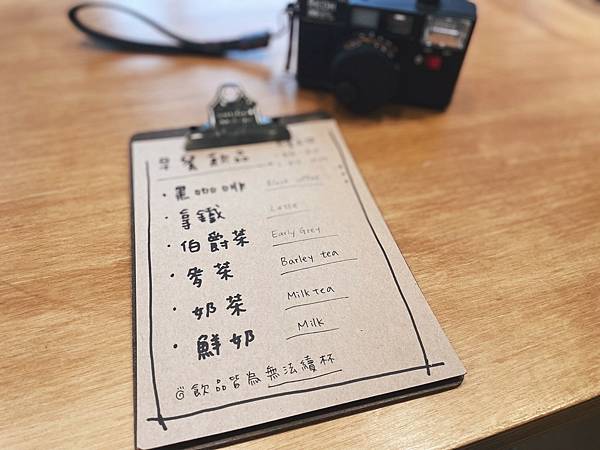 早餐飲品
・黑咖啡 Black coffee
・拿鐵 Latte
・伯爵茶 Early Grey
・麥茶 Barley tea
・奶茶 Milk tea
・鮮奶 Milk
◎飲品皆為無法續杯